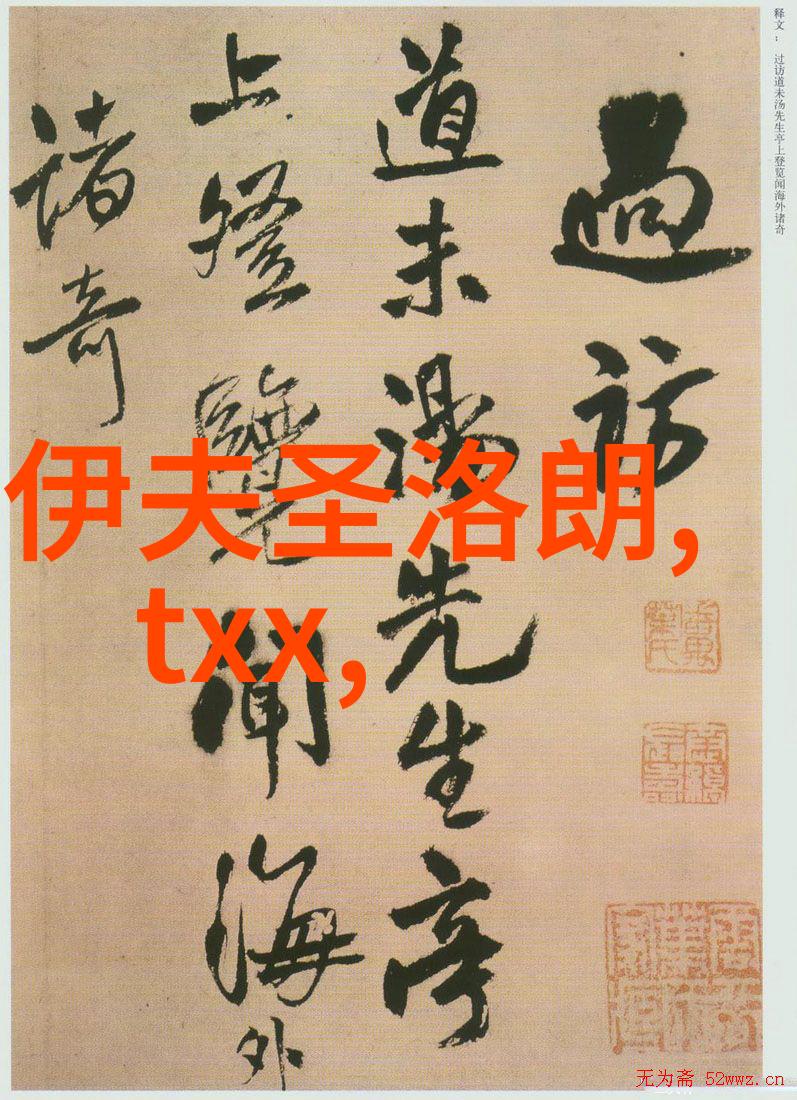 释文： 过访道未汤先生亭上登览闻海外诸奇
過訪
道未湯先生亭
上登覽聞海外
諸奇
伊夫圣洛朗,
txx,
无为斋 52wwz.cn